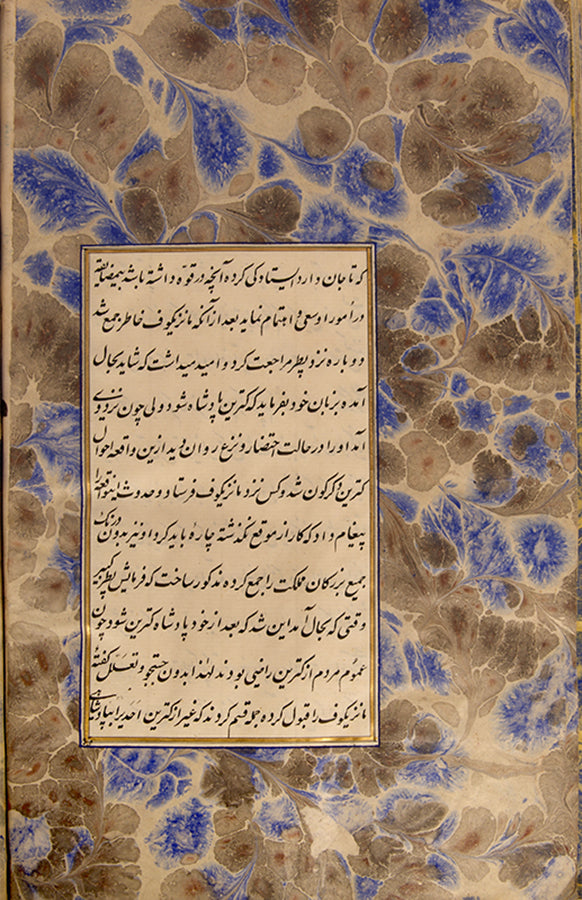 که تا جان دارد ایستادگی کرده آنچه در قوه داشته باشد بیمضایقه
در امور او سعی و اهتمام نماید بعد از آنکه مانزیکوف خاطر جمع شد
دوباره نزد پطر مراجعت کرد و امید میداشت که شاید بحال
آمده بزبان خود بفرماید که کترین پادشاه شود ولی چون نزد وی
آمد او را در حالت احتضار و نزع روان دید ازین واقعه احوال
کترین دگرگون شد و کس نزد مانزیکوف فرستاد و حدوث اینواقعه را
پیغام داد که کار از موقع نگذشته چاره باید کرد او نیز بدون درنگ
جمیع بزرکان مملکت را جمع کرده مذکور ساخت که فرمایش پطر کبیر
وقتی که بحال آمد این شد که بعد از خود پادشاه کترین شود چون
عموم مردم از کترین راضی بودند لهذا بدون جستجو و تعلل کفته
مانزیکوف را قبول کرده جمله قسم کردند که غیر از کترین احدیرا بپادشاهی